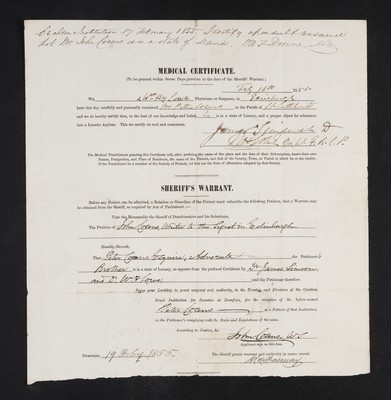 Crichton Institution 17 February 1855. I certify
that Mr John Cosens is in a state of Mania.
MEDICAL CERTIFICATE.
(To be granted within Seven Days previous to the date of the Sheriff's Warrant.)
Feby 16th 1855
We, Physicians or Surgeons, in Edinburgh
have this day carefully and personally examined Mr Peter Cosens in the Parish of St Cuthberts
and we do hereby certify that, to the best of our knowledge and belief he is in a state of Lunacy, and a proper object for admission
into a Lunatic Asylum. This we certify on soul and conscience.
The Medical Practitioners granting this Certificate will, after prefixing the name of the place and the date of their Subscription, insert their own
Names, Designation, and Place of Residence, the name of the Patient, and that of the County, Town, or Parish in which he or she resides.
If the Practitioner be a member of the Society of Friends, let him use the form of affirmation adopted by that Society.
SHERIFF'S WARRANT.
Before any Patient can be admitted, a Relation or Guardian of the Patient must subscribe the following Petition, that a Warrant may
be obtained from the Sheriff, as required by Act of Parliament:—
Unto the Honourable the Sheriff of Dumfriesshire and his Substitutes,
The Petition of John Cosens Writer to the Signet in Edinburgh
Humbly Sheweth,
That Peter Cosens Esquire, Advocate the Petitioner's
Brother is in a state of lunacy, as appears from the prefixed Certificate by Dr James Simson
and Dr W H Lowe and the Petitioner therefore
Prays your Lordship to grant warrant and authority, to the Trustees and Directors of the Crichton
Royal Institution for Lunatics at Dumfries, for the reception of the before-named
Peter Cosens as a Patient of that Institution,
on the Petitioner's complying with the Rules and Regulations of the same.
According to Justice, &c.
John Cosens W.S.
Applicant signs on this line.
Dumfries, 19 Feby 1855. The Sheriff grants warrant and authority in terms craved